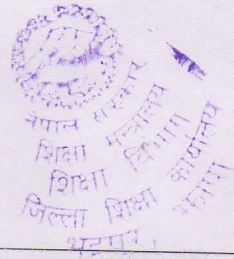 नेपाल सरकार
शिक्षा मन्त्रालय
शिक्षा विभाग
जिल्ला शिक्षा कार्यालय
भद्रपुर, झापा